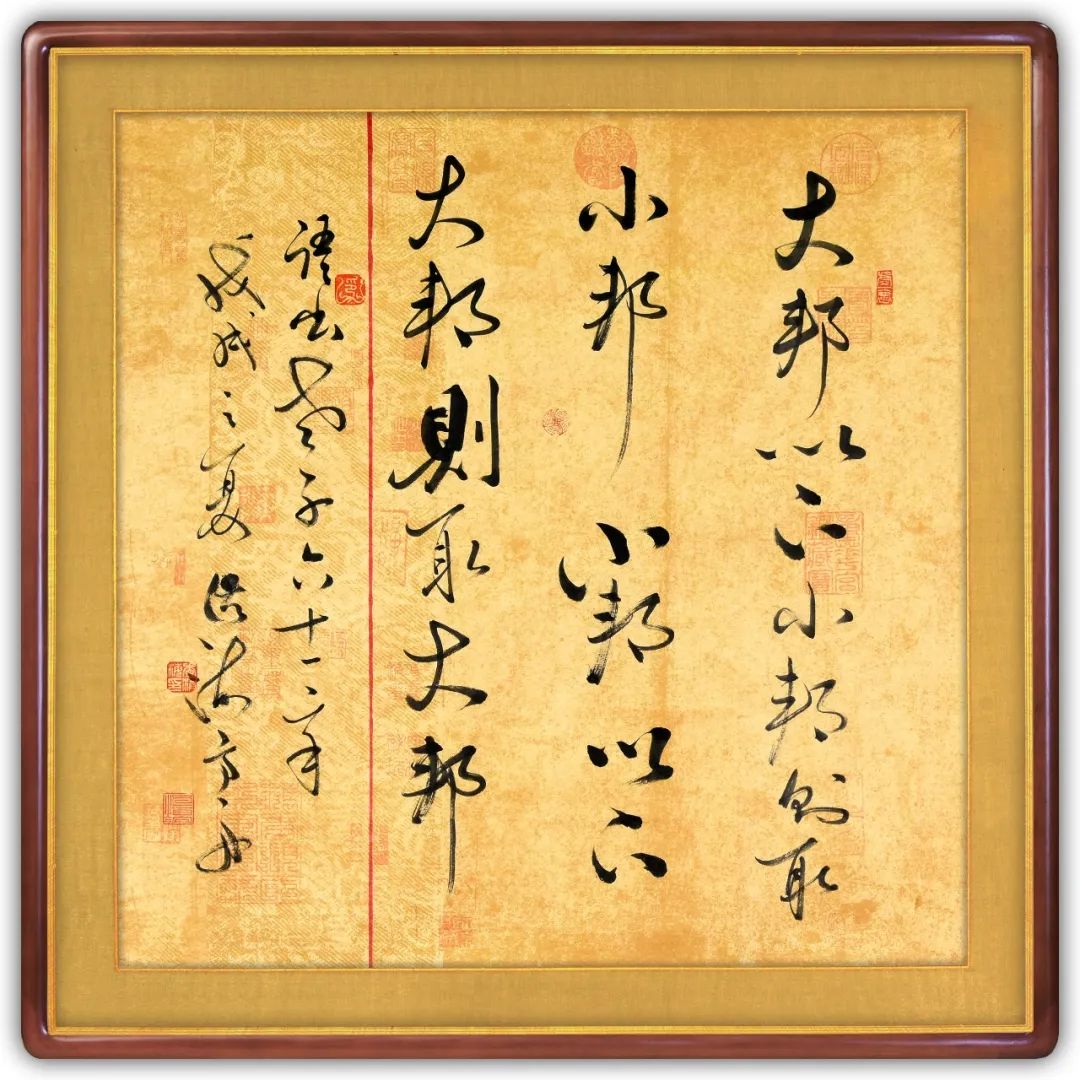 大邦以下小邦則取
小邦小邦以下
大邦則取大邦
語出老子六十一章
戊戌之夏